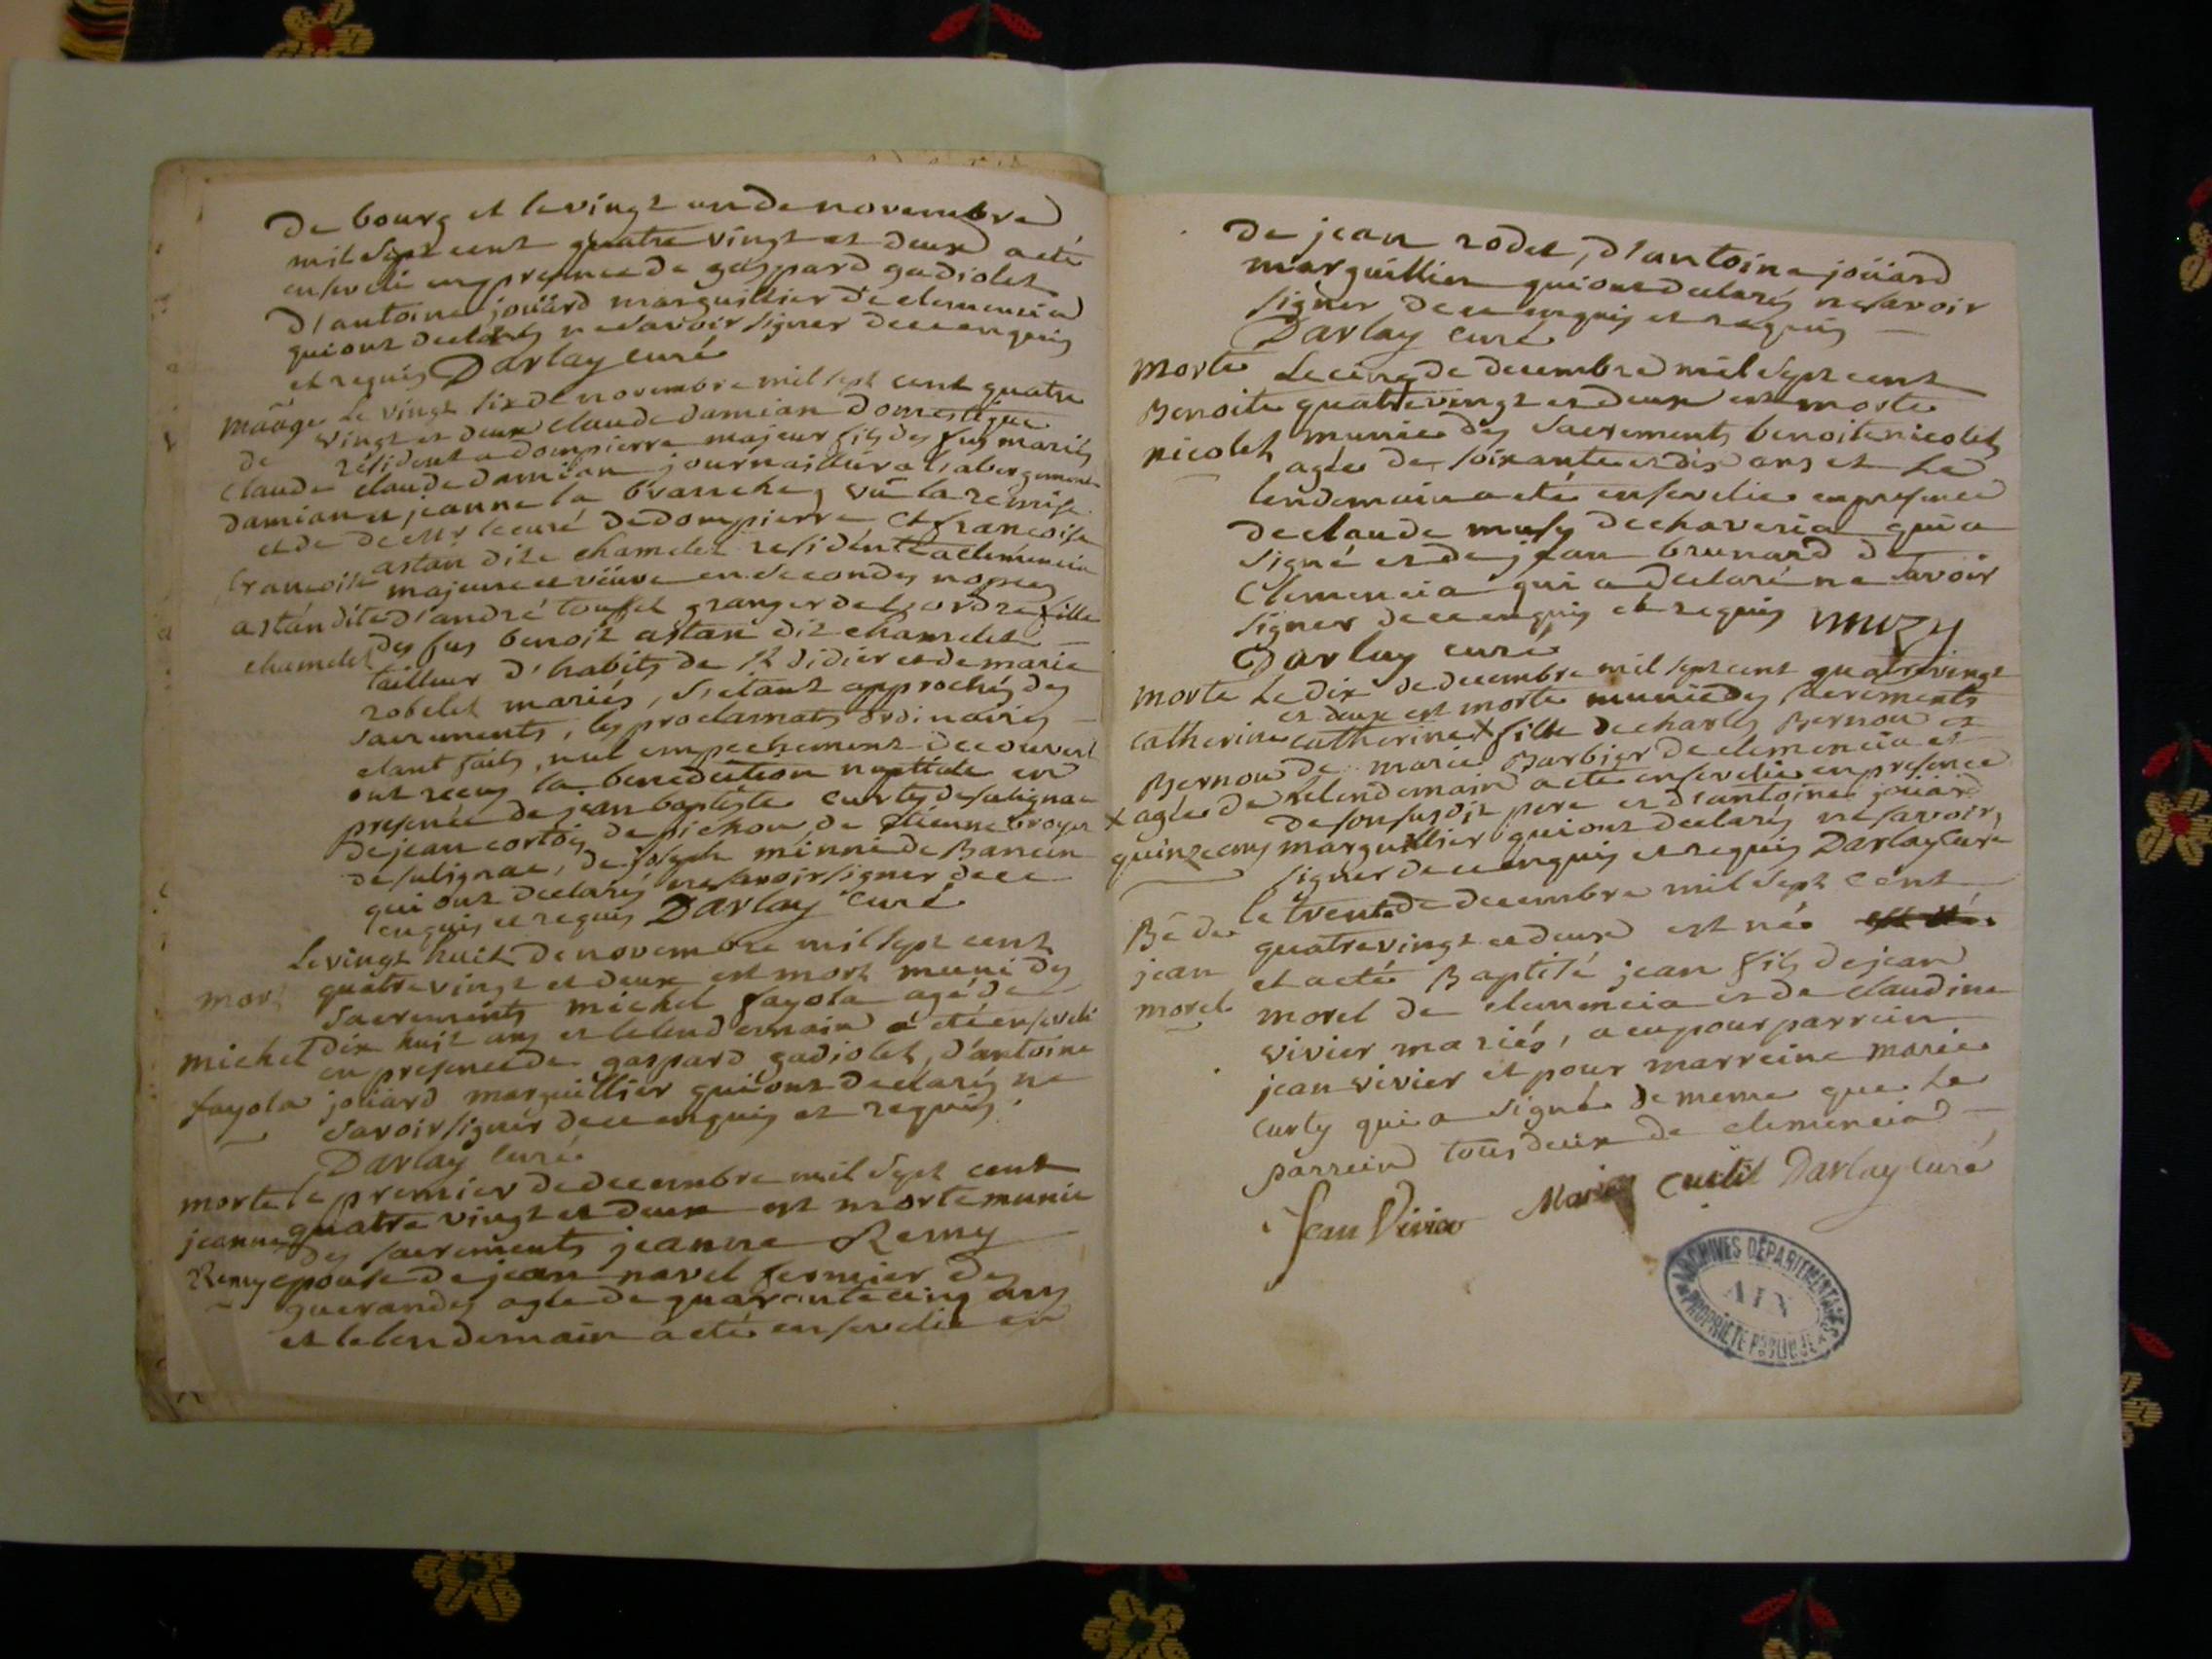 De bourg et le vingt un de novembre
mil sept cent quatre vingt et deux a eté
enseveli en presence de gaspard gadiolet
d'antoine joüard marguillier de clemencia
qui ont declarés ne savoir signer de ce enquis
et requis Darlay curé
mãage Le vingt six de novembre mil sept cent quatre
vingt et deux claude damian domestique
de résident a dompierre majeur fils des fus mariés
claude claude damian journailleur a l'abergement
damian et jeanne la brasseche, vü la remise
et de de Mr le curé de dompierre et francoise
francoise astan dite chamelet residente a clemencia
majeure et veuve en secondes noces
astan dite d'andré touffet granger de fille
chamelet des fus benoit astan dit chamelet
tailleur d'habits de St didier et de marie
robelet mariés, s'étant approchés des
sacrements, les proclamats ordinaires
etant faits, nul empechement decouvert
ont recus la benediction nuptiale en
presence de jean baptiste curty de sulignac
de jean cortois de pichon, de étienne broyer
de sulignac, de joseph minni de Banein
qui ont declarés ne savoir signer de ce
enquis et requis Darlay curé
Le vingt huit de novembre mil sept cent
mort quatre vingt et deux est mort muni des
sacrements michel fayola agé de
michel dix huit ans et le lendemain a eté enseveli
en presence de gaspard gadiolet, d'antoine
fayola joüard marguillier qui ont declarés ne
savoir signer de ce enquis et requis.
Darlay curé
morte le premier de decembre mil sept cent
jeanne quatre vingt et deux est morte munie
des sacrements jeanne Remy
Remy epouse de jean navel fermier des
guerandes agée de quarante cinq ans
et le lendemain a eté ensevelie en
de jean rodet, d'antoine joüard
marguillier qui ont declarés ne savoir
signer de ce enquis et requis
Darlay curé
morte Le cinq de decembre mil sept cent
Benoite quatre vingt et deux est morte
nicolet munie des sacrements benoite nicolet
agée de soixante et dix ans et le
lendemain a eté ensevelie en presence
de claude musy de chaveria qui a
signé et de jean brunard de
Clemencia qui a declaré ne savoir
signer de ce enquis et requis muzy
Darlay curé
morte Le dix de decembre mil sept cent quatre vingt
et deux est morte munie des sacrements
catherine catherine x fille de charles Bernou et
Bernou de marie Barbier de clemencia et
x agée de le lendemain a eté ensevelie en presence
de son susdit pere et d'antoine joüard
quinze ans marguillier qui ont declarés ne savoir
signer de ce enquis et requis Darlay Curé
le trente de decembre mil sept cent
Bê de quatre vingt et deux est né
jean et a eté Baptisé jean fils de jean
morel morel de clemencia et de claudine
vivier mariés, a eu pour parrein
jean vivier et pour marreine marie
curty qui a signé de meme que le
parrein tous deux de clemencia
Jean Vivier Marie Darlay Curé
ARCHIVES DÉPARTEMENTALES
AIN
PROPRIÉTÉ PUBLIQUE